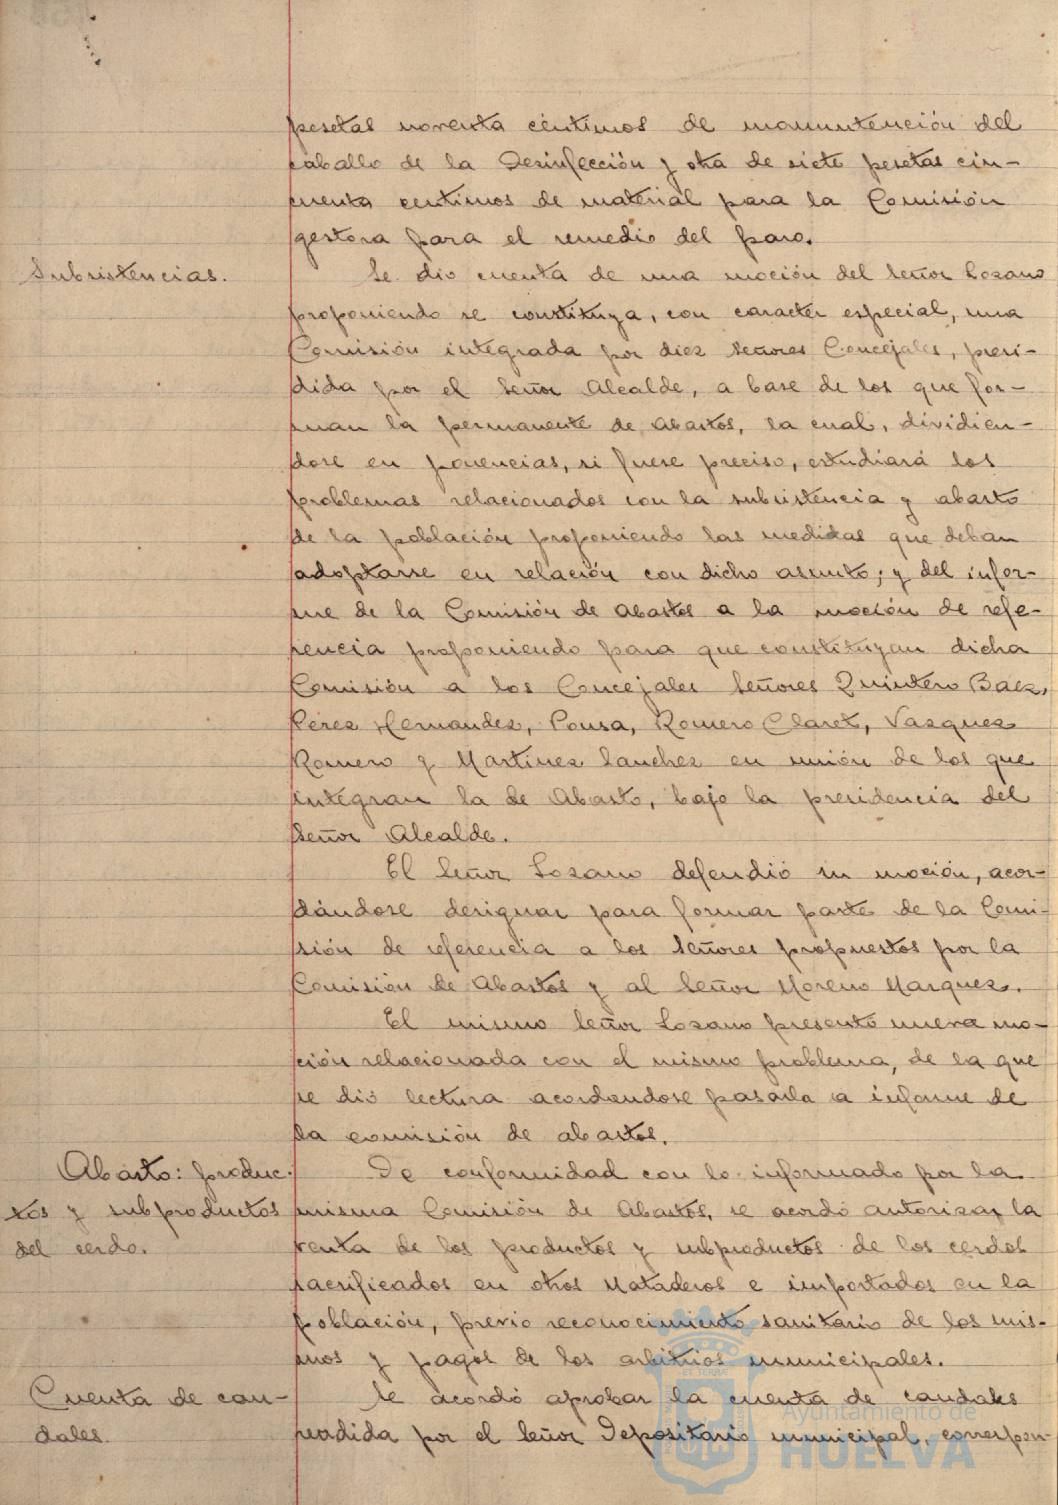 pesetas noventa céntimos de manutención del
caballo de la Desinfección y otra de siete pesetas cin-
cuenta centimos de material para la Comisión
gestora para el remedio del paro.
Subsistencias.
Se dio cuenta de una moción del Señor Lozano
proponiendo se constituya, con caracter especial, una
Comisión integrada por diez Señores Concejales, presi-
dida por el Señor Alcalde, a base de los que for-
man la permanente de Abastos, la cual, dividien-
dose en ponencias, si fuese preciso, estudiará los
problemas relacionados con la subsistencia y abasto
de la población proponiendo las medidas que deban
adoptarse en relación con dicho asunto; y del infor-
me de la Comisión de Abastos a la moción de refe-
rencia proponiendo para que constituyan dicha
Comisión a los Concejales Señores Quintero Baez,
Perez Hernandez, Ponsa, Romero Claret, Vazquez
Romero y Martinez Sanchez en unión de los que
integran la de Abasto, bajo la presidencia del
Señor Alcalde.
El Señor Lozano defendió su moción, acor-
dándose designar para formar parte de la Comi-
sión de referencia a los Señores propuestos por la
Comisión de Abastos y al Señor Moreno Marquez.
El mismo Señor Lozano presentó nueva mo-
ción relacionada con el mismo problema, de la que
se dió lectura acordandose pasarla a informe de
la comisión de abastos.
Abasto: produc-
tos y subproductos
del cerdo.
De conformidad con lo informado por la
misma Comisión de Abastos, se acordó autorizar la
venta de los productos y subproductos de los cerdos
sacrificados en otros Mataderos e importados en la
población, previo reconocimiento sanitario de los mis-
mos y pagos de los arbitrios municipales.
Cuenta de cau-
dales.
Se acordó aprobar la cuenta de caudales
rendida por el Señor Depositario municipal, correspon-
Ayuntamiento de
HUELVA